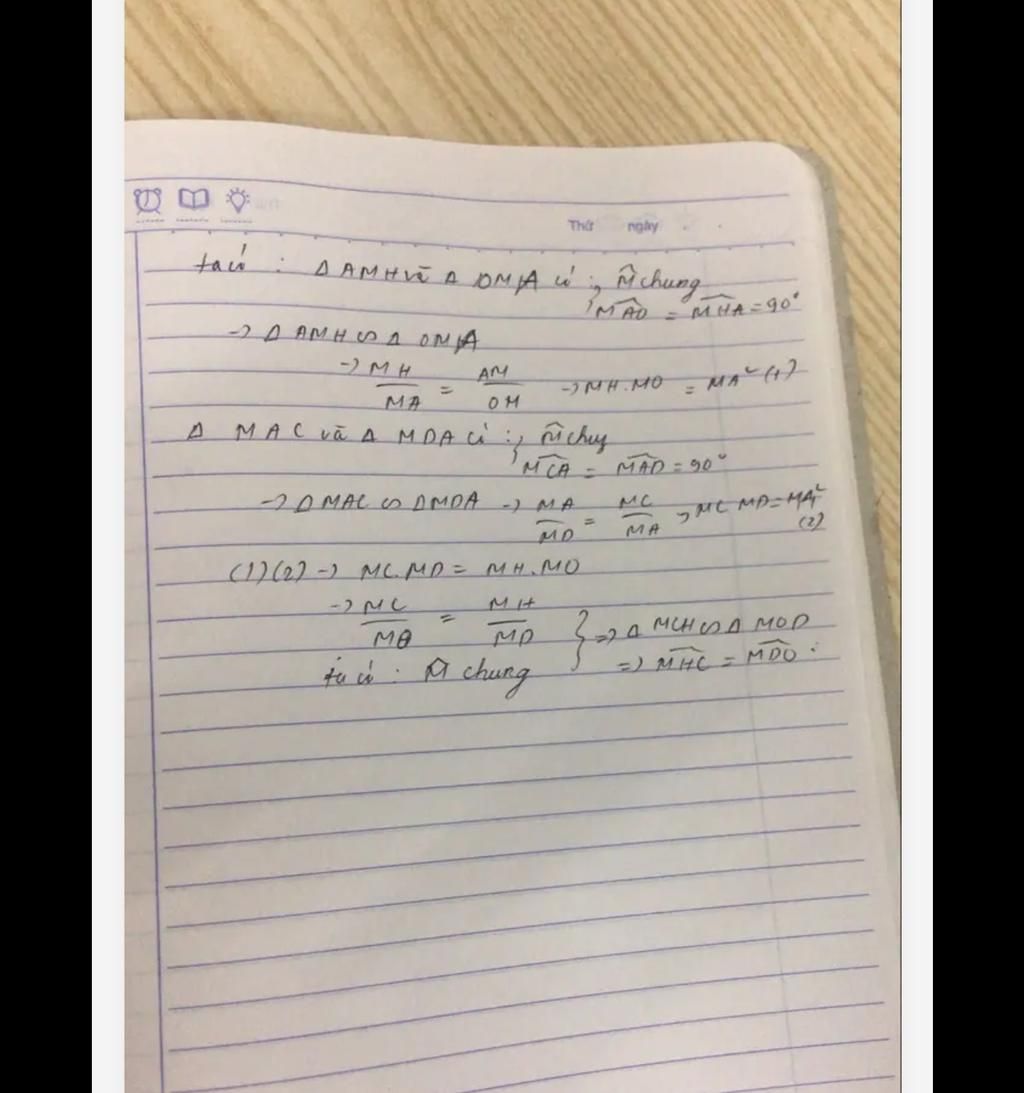 Thứ ngày
ta có : Δ AMH và Δ OMA có : M̂ chung
M̂AO = M̂HA = 90°
→ Δ AMH ∽ Δ OMA
→ MH/MA = AM/OM → MH.MO = MA² (1)
Δ MAC và Δ MDA có : M̂ chug
M̂CA = M̂AD = 90°
→ Δ MAC ∽ Δ MDA → MA/MD = MC/MA → MC MD = MA² (2)
(1)(2) → MC.MD = MH.MO
→ MC/MO = MH/MD } ⇒ Δ MCH ∽ Δ MOD
ta có : M̂ chung ⇒ M̂HC = M̂DO